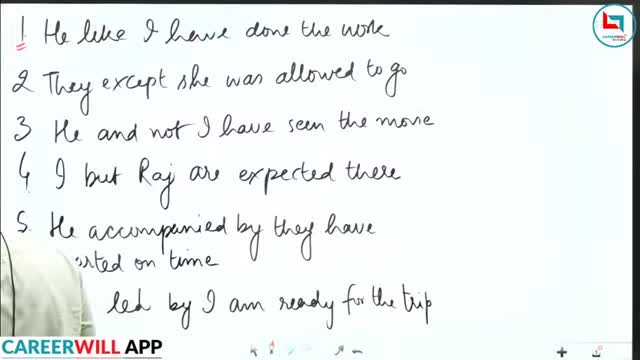 1 He like I have done the work
CAREERWILL
2 They except she was allowed to go
3 He and not I have seen the movie
4 I but Raj are expected there
5. He accompanied by they have
on time
led by I am ready for the trip
CAREERWILL APP